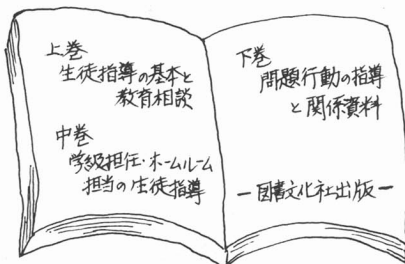 上巻
生徒指導の基本と
教育相談
中巻
学級担任・ホームルーム
担当の生徒指導
下巻
問題行動の指導
と関係資料
―図書文化社出版―